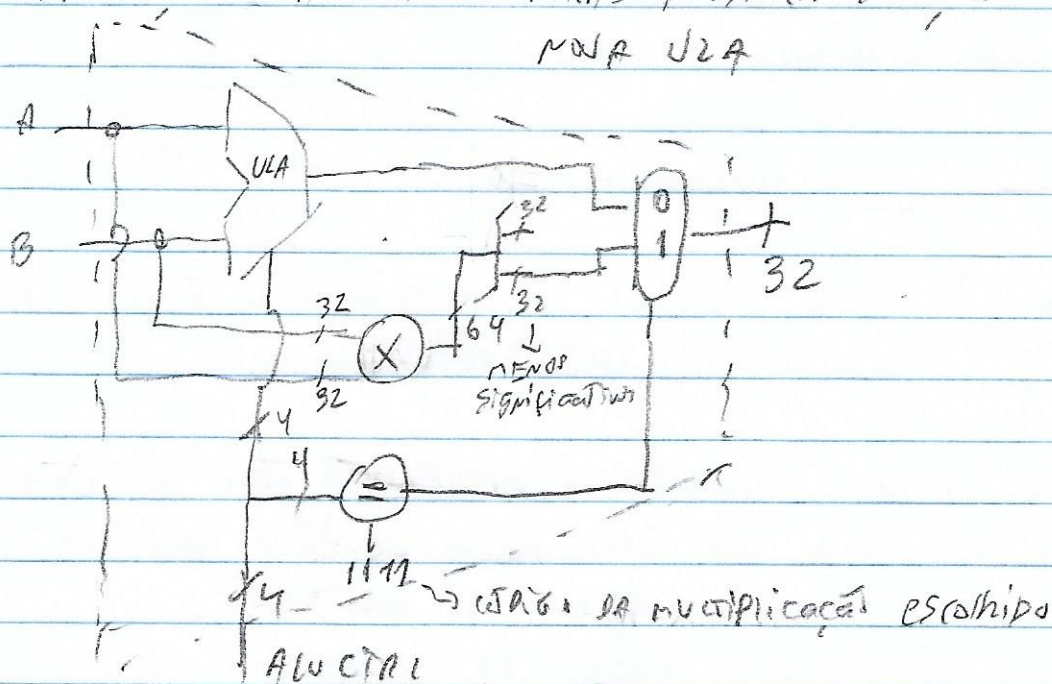 NOVA ULA
A
ULA
0
1
32
32
B
32
64
32
X
MENOS
significativos
32
4
4
=
1111
4
código DA multiplicação escolhido
ALU CTRL